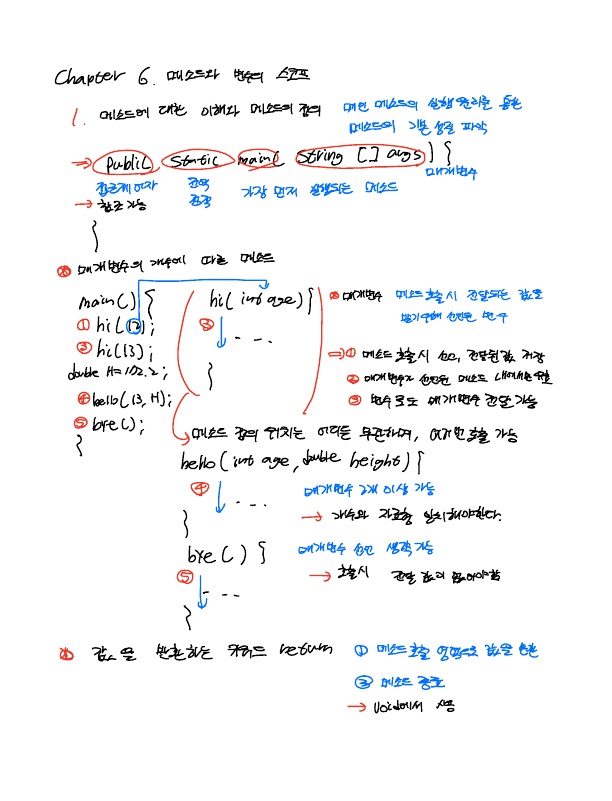 Chapter 6. 메소드와 변수의 스코프
1. 메소드에 대한 이해와 메소드의 정의 메인 메소드의 실행 원리를 통한
메소드의 기본 성질 파악
→ public static main( String [] args) {
접근제어자 정적 가장 먼저 실행되는 메소드 매개변수
→ 참조 가능
}
※ 매개변수의 개수에 따른 메소드
main() { hi( int age) { ※ 매개변수 메소드 호출시 전달되는 값을
받기위해 선언된 변수
① hi(12);
③ hi(13); ...
double H=102.2; }
④ hello(13, H);
⑤ bye();
}
⇒ ① 메소드 호출시 선언, 전달된 값 저장
② 매개변수가 선언된 메소드 내에서만 유효
③ 변수로도 매개변수 전달 가능
→ 메소드 정의 위치는 어디든 무관하며, 여러번 호출 가능
hello( int age, double height) {
④ ... 매개변수 2개 이상 가능
→ 개수와 자료형 일치해야한다.
}
bye() { 매개변수 선언 생략가능
⑤ ... → 호출시 전달 값이 없어야함
}
※ 값을 반환하는 키워드 return ① 메소드 호출 영역으로 값을 반환
② 메소드 종료
→ void에서 사용